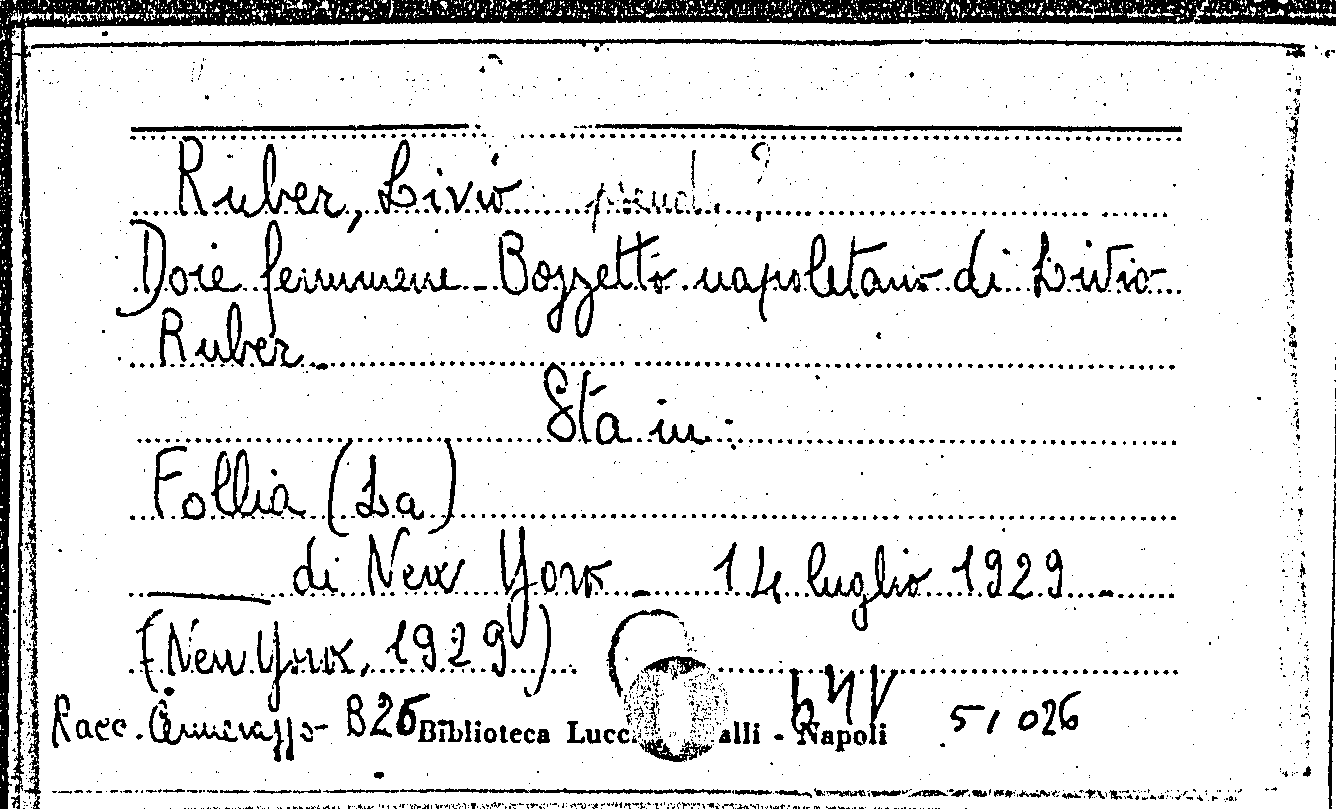 Ruber, Livio pseud. ?
Doie femmene - Bozzetto napoletano di Livio
Ruber.
Sta in:
Follia (La)
di New York - 14 luglio 1929 -
(New York, 1929)
Racc. B26 Biblioteca Lucc alli - Napoli 51026